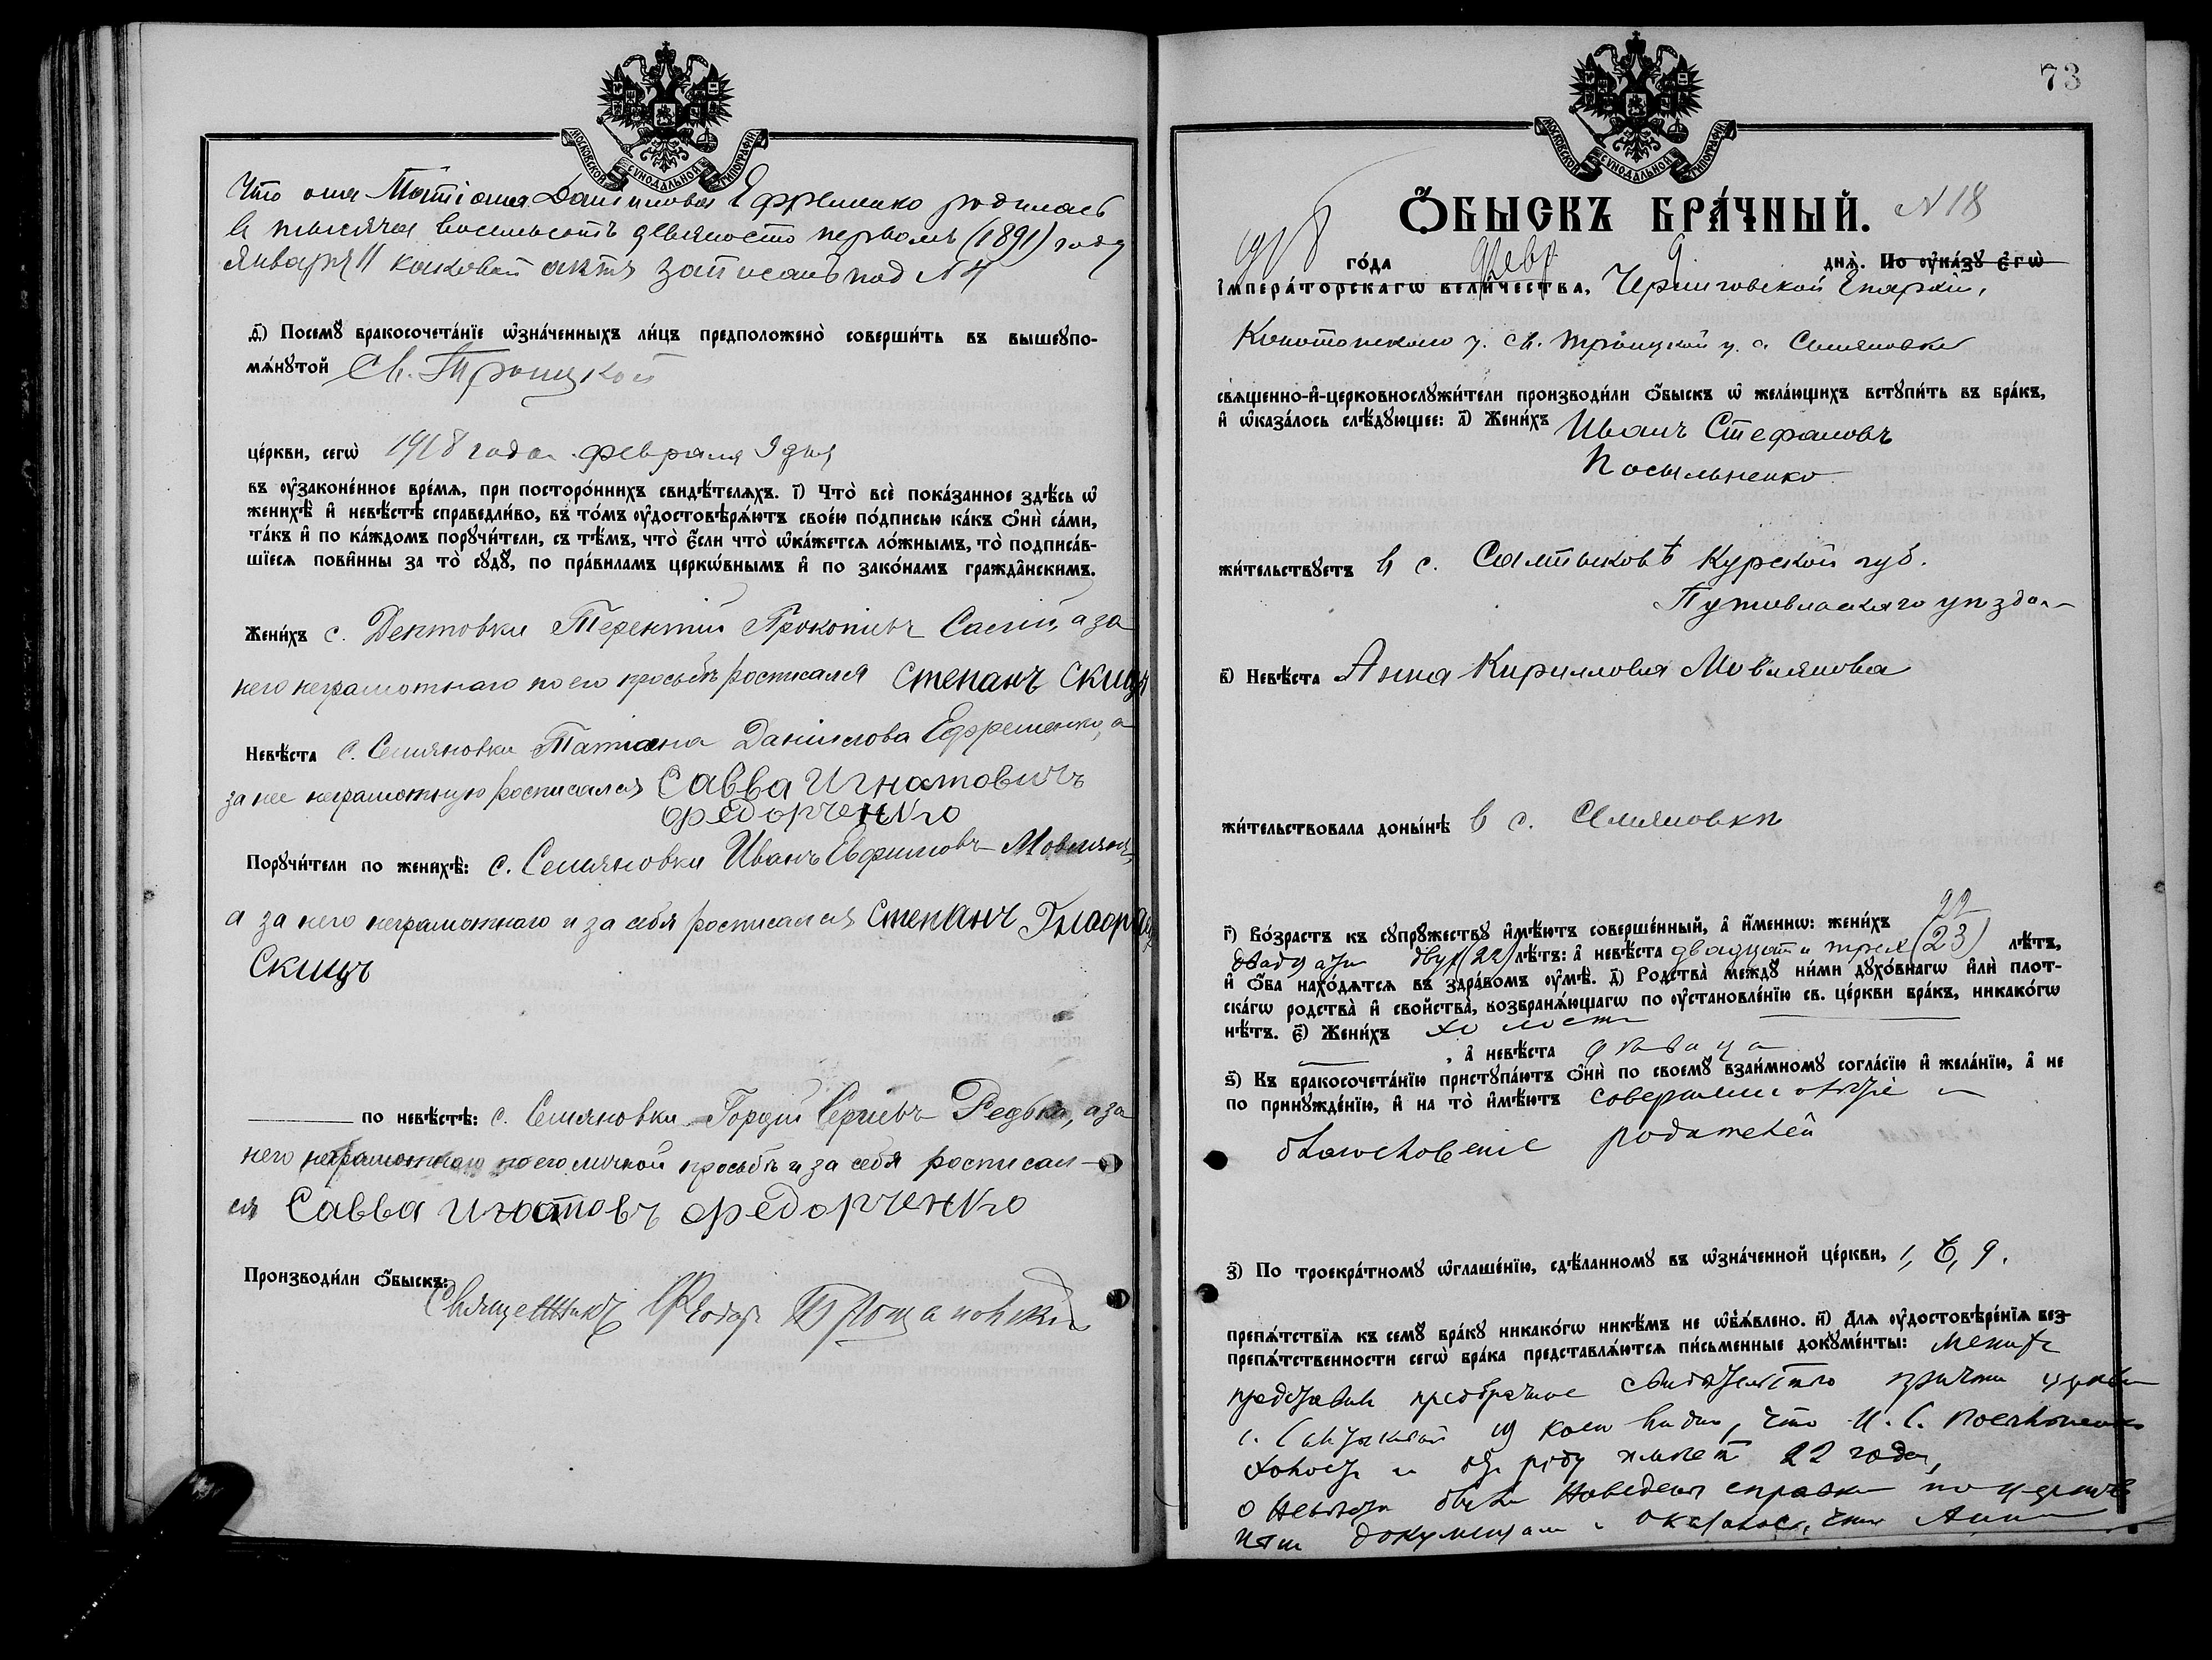 МОСКОВСКОЙ СѴНОДАЛЬНОЙ ТИПОГРАФІИ
Что она Татіана Даниилова Ефременко родилась
в тысяча восемьсотъ девяносто первомъ (1891) году
Января 11 каковой актъ записанъ под № 4
д҃) Посемꙋ бракосочета́нїе ѡ҆зна́ченныхъ ли́цъ предположено̀ соверши́ть въ вышеꙋпо-
мѧ́нꙋтой Св. Троицкой
це́ркви, сегѡ̀ 1918 года февраля 9 дня
въ ᲂу҆законе́нное вре́мѧ, при посторо́ннихъ свидѣ́телѧхъ. і҃) Что̀ всѐ пока́занное здѣ́сь ѡ҆
женихѣ̀ и҆ невѣ́стѣ справедли́во, въ то́мъ ᲂу҆достовѣрѧ́ютъ свое́ю по́дписью ка́къ ѻ҆нѝ са́ми,
та́къ и҆ по ка́ждомъ порꙋчи́тели, съ тѣ́мъ, что̀ є҆́сли что̀ ѡ҆ка́жетсѧ ло́жнымъ, то̀ подписа́в-
шїесѧ пови́нны за то̀ сꙋдꙋ̀, по пра́виламъ церкѡ́внымъ и҆ по зако́намъ гражда̂нскимъ.
Жени́хъ с. Дептовки Терентій Прокопіевъ Сасин, а за
него неграмотнаго по его просьбѣ росписался Степанъ Скицъ
Невѣ́ста с. Семяновки Татіана Даниилова Ефременко, а
за нее неграмотную росписался Савва Игнатовичъ
Федорченко
Порꙋчи́тели по женихѣ̀: с. Семяновки Иванъ Евфимовъ Мовмян,
а за него неграмотнаго и за себя росписался Степанъ
Скицъ
по невѣ́стѣ: с. Семяновки Гордій Сергіевъ Редька, а за
него неграмотнаго по его личной просьбѣ и за себя росписал-
ся Савва Игнатовъ Федорченко
Производи́ли ѻ҆́быскъ:
Священникъ
73
МОСКОВСКОЙ СѴНОДАЛЬНОЙ ТИПОГРАФІИ
Ѻ҆́БЫСКЪ БРА́ЧНЫЙ. N 18
1918 го́да февр 9 днѧ̀. По ᲂу҆ка́зꙋ є҆гѡ̀
І҆мпера́торскагѡ вели́чества, Черниговской Епархіи,
Конотопского у. св. Троицкой ц. с. Семяновки
свѧще́нно-и҆-церковнослꙋжи́тели производи́ли ѻ҆́быскъ ѡ҆ жела́ющихъ встꙋпи́ть въ бра́къ,
и҆ ѡ҆каза́лось слѣ́дꙋющее: а҃) Жени́хъ Иванъ Стефановъ
Посыльненко
жи́тельствꙋетъ в с. Салтыковѣ Курской губ.
Путивльскаго уѣзда
в҃) Невѣ́ста Анна Кириллова Мовмянова
жи́тельствовала доны́нѣ в с. Семяновкѣ
22
г҃) Во́зрастъ къ сꙋпрꙋ́жествꙋ и҆мѣ́ютъ соверше́нный, а҆ и҆́меннѡ: жени́хъ
двадцати двух (22) лѣ́тъ: а҆ невѣ́ста двадцати трех (23) лѣ́тъ,
и҆ ѻ҆́ба нахо́дѧтсѧ въ здра́вомъ ᲂу҆мѣ̀. д҃) Родства̀ междꙋ̀ ни́ми дꙋхо́внагѡ и҆лѝ плот-
ска́гѡ родства̀ и҆ сво́йства̀, возбранѧ́ющагѡ по ᲂу҆становле́нїю св. це́ркви бра́къ, никако́гѡ
нѣ́тъ. є҃) Жени́хъ холостъ
, а҆ невѣ́ста дѣвица
ѕ҃) Къ бракосочета́нїю пристꙋпа́ютъ ѻ҆нѝ по своемꙋ̀ взаи́мномꙋ согла́сїю и҆ жела́нїю, а҆ не
по принꙋжде́нїю, и҆ на то̀ и҆мѣ́ютъ совершеннолѣтіе и
благословеніе родителей
з҃) По троекра́тномꙋ ѡ҆глаше́нїю, сдѣ́ланномꙋ въ ѡ҆зна́ченной це́ркви, 1, 6, 9.
препѧ́тствїѧ къ семꙋ̀ бра́кꙋ никако́гѡ никѣ́мъ не ѡ҆б̾ѧ́влено. и҃) Длѧ ᲂу҆достовѣре́нїѧ без-
препѧ́тственности сегѡ̀ бра́ка представлѧ́ютсѧ пи́сьменные докꙋме́нты: женихъ
представил предбрачное свидѣтельство причта церкви
с. из коего видно, что И. С.
холост и от роду имѣет 22 года,
о невѣстѣ была наведена справка по церков
ным документам и оказалось, что Анна